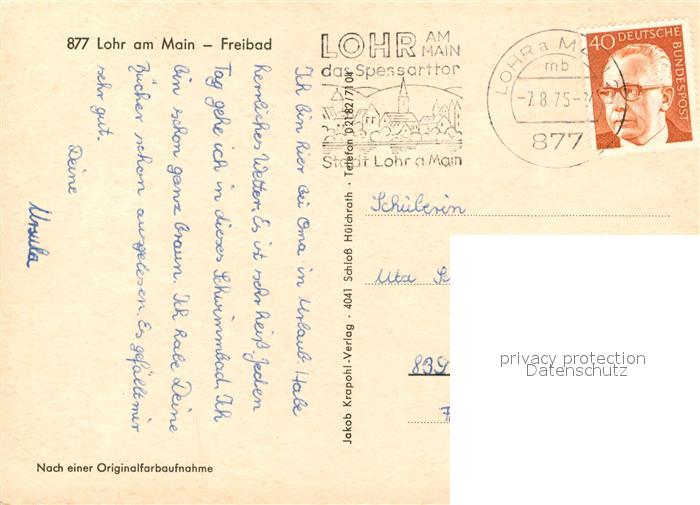 877 Lohr am Main – Freibad
Ich bin hier bei Oma in Urlaub. Habe
herrliches Wetter. Es ist sehr heiß. Jeden
Tag gehe ich in dieses Schwimmbad. Ich
bin schon ganz braun. Ich habe Deine
Bücher schon ausgelesen. Es gefällt mir
sehr gut.
Deine
Ursula
Nach einer Originalfarbaufnahme
Jakob Krapohl-Verlag · 4041 Schloß Hülchrath · Telefon 0 21 82/71 04
LOHR AM MAIN
das Spessarttor
Stadt Lohr a Main
LOHR a M
mb
-7.8.75-
877
40 DEUTSCHE BUNDESPOST
Schülerin
Uta
privacy protection
Datenschutz